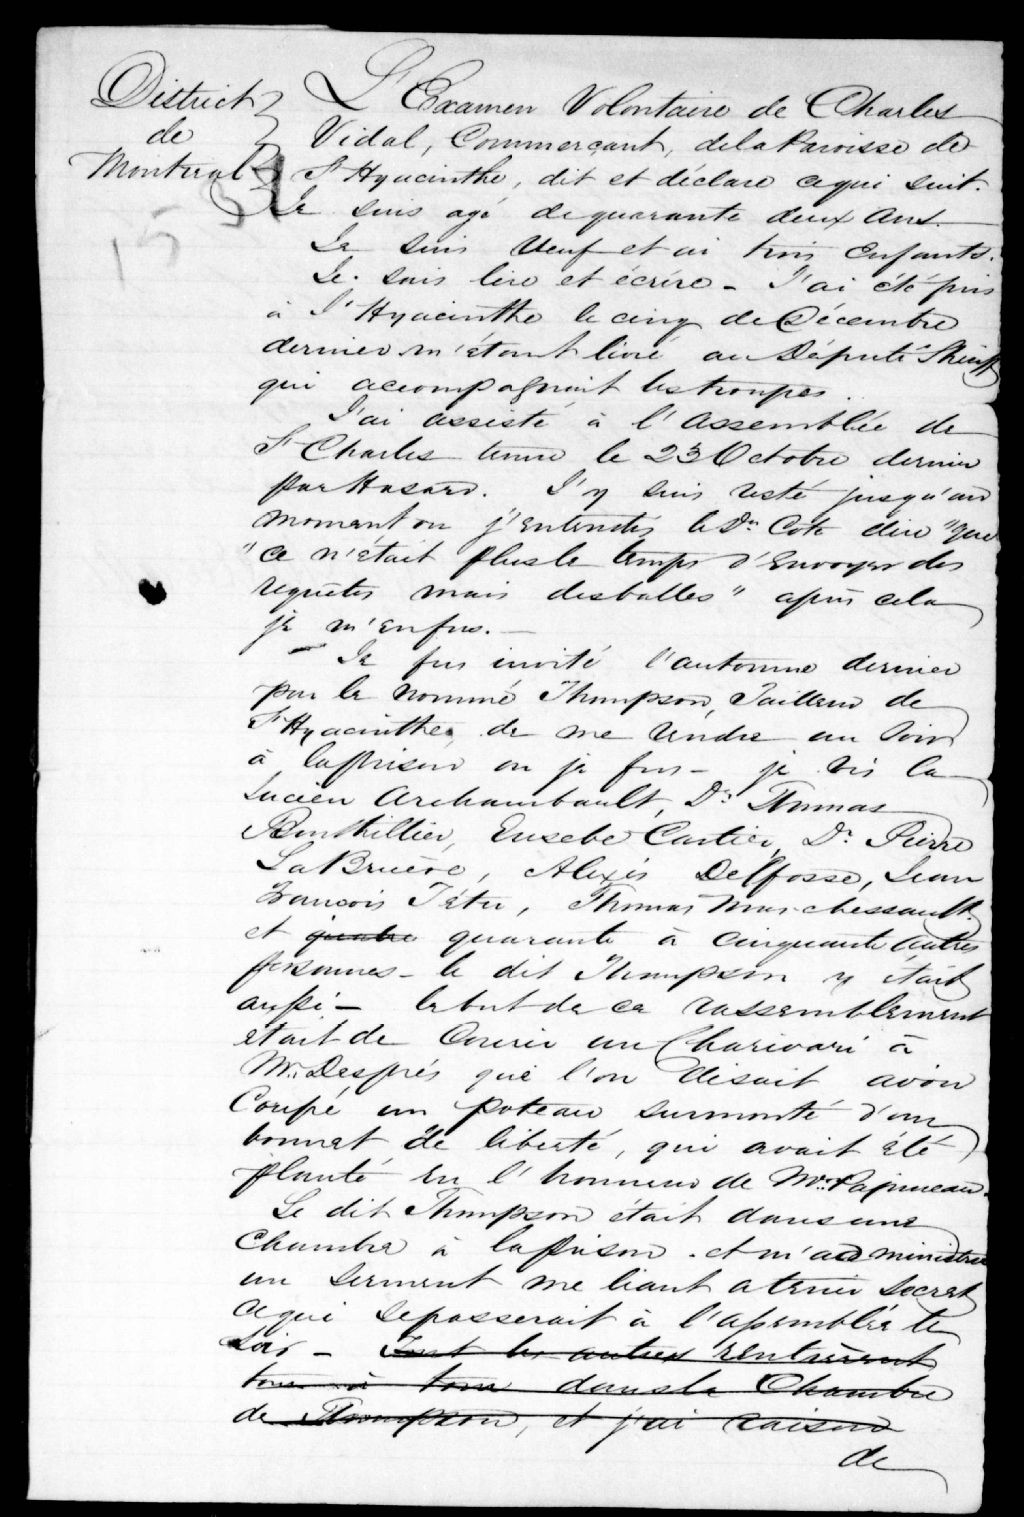 District L'Examen Volontaire de Charles
de Vidal, Commerçant, de la Paroisse de
Montreal St Hyacinthe, dit et déclare ce qui suit.
Je suis agé de quarante deux ans.
Je suis veuf et ai trois enfants.
Je sais lire et écrire - J'ai été pris
à St Hyacinthe le cinq de Décembre
dernier m'étant livré au Député Shériff
qui accompagnait les troupes.
J'ai assisté à l'assemblée de
St Charles tenue le 23 Octobre dernier
par Hasard. J'y suis resté jusqu'au
moment ou j'entendis le Dr. Coté dire "que
"ce n'était plus le temps d'Envoyer des
requêtes mais des balles" après cela
je m'en fus. -
Je fus invité l'automne dernier
par le nommé Thompson, Tailleur de
St Hyacinthe, de me rendre un soir
à la prison ou je fus - je vis la
Lucien Archambault, Dr. Thomas
Bouthillier, Eusebe Cartier, Dr. Pierre
LaBruère, Alexis Delfosse, Jean
François Têtu, Thomas Marchessault
et quatre quarante à cinquante autres
personnes - le dit Thompson y était
aussi - le but de ce rassemblement
etait de Courir un Charivari à
Mr. Desprès que l'on disait avoir
Coupé un poteau surmonté d'un
bonnet de liberté, qui avait été
planté en l'honneur de Mr. Papineau.
Le dit Thompson était dans une
Chambre à la prison. et m'administra
un serment me liant a tenir secret
ce qui se passerait à l'assemblée le
soir - Tout les autres rentrèrent
tour à tour dans la Chambre
de Thompson, et j'ai raison
de